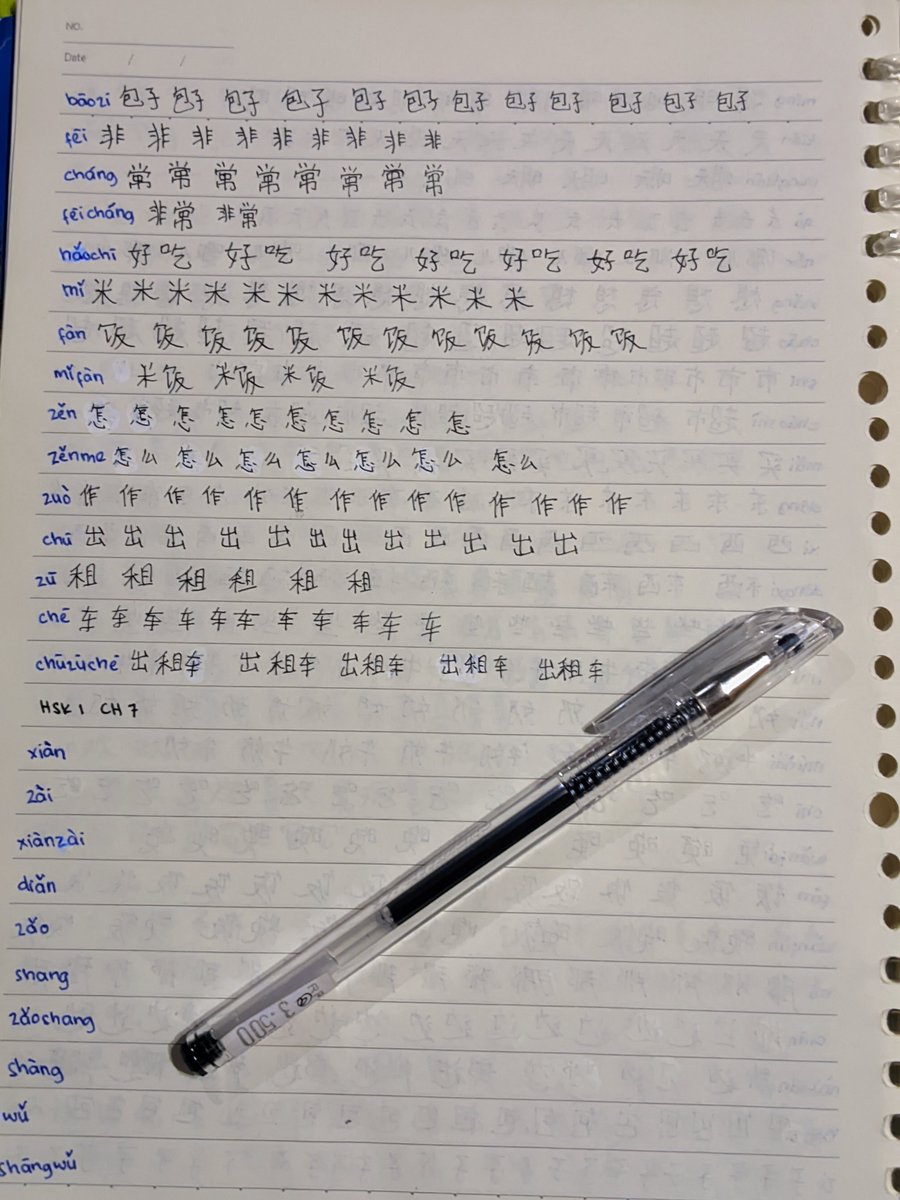 NO.
Date / /
bāozi 包子 包子 包子 包子 包子 包子 包子 包子 包子 包子 包子 包子
fēi 非 非 非 非 非 非 非 非 非
cháng 常 常 常 常 常 常 常 常
fēicháng 非常 非常
hǎochī 好吃 好吃 好吃 好吃 好吃 好吃 好吃
mǐ 米 米 米 米 米 米 米 米 米 米 米 米
fàn 饭 饭 饭 饭 饭 饭 饭 饭 饭 饭 饭 饭
mǐfàn 米饭 米饭 米饭 米饭
zěn 怎 怎 怎 怎 怎 怎 怎 怎 怎 怎
zěnme 怎么 怎么 怎么 怎么 怎么 怎么 怎么
zuò 作 作 作 作 作 作 作 作 作 作 作 作 作 作
chū 出 出 出 出 出 出 出 出 出 出 出 出
zū 租 租 租 租 租 租
chē 车 车 车 车 车 车 车 车 车 车 车
chūzūchē 出租车 出租车 出租车 出租车 出租车
HSK 1 CH 7
xiàn
zài
xiànzài
diǎn
zǎo
shang
zǎoshang
shàng
wǔ
shàngwǔ
3.500